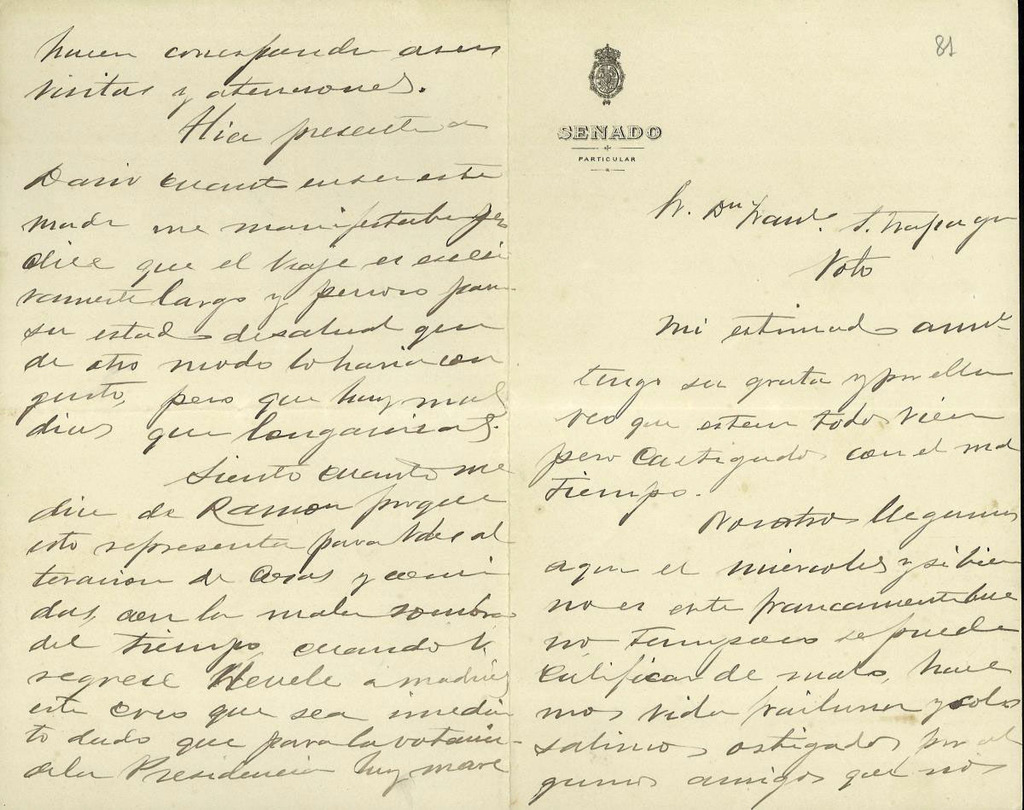 81
SENADO
PARTICULAR
Sr. Dn Franco. S. Trapaga
Voto
Mi estimado amo.
tengo su grata y por ella
veo que esten todos bien
pero castigados con el mal
tiempo.
Nosotros llegamos
aqui el miercoles y si bien
no es este francamente bue
no tampoco se puede
calificar de malo, hace
mos vida frailuna y solo
salimos ostigados por al
gunos amigos que nos
hacen corresponder a sus
visitas y atenciones.
Hice presente a
Dario cuanto en ser este
modo me manifestaba y
dice que el viaje es excesi
vamente largo y penoso para
su estado de salud que
de otro modo lo haria con
gusto, pero que hay mas
dias que longanizas.
Siento cuanto me
dice de Ramon porque
esto representa para Vdes al
teracion de cosas y comi
das, con la mala sombra
del tiempo, cuando V.
regrese lleuele a madrid
este creo que sea inmedia
to dado que para la votacion
de la Presidencia hay mare